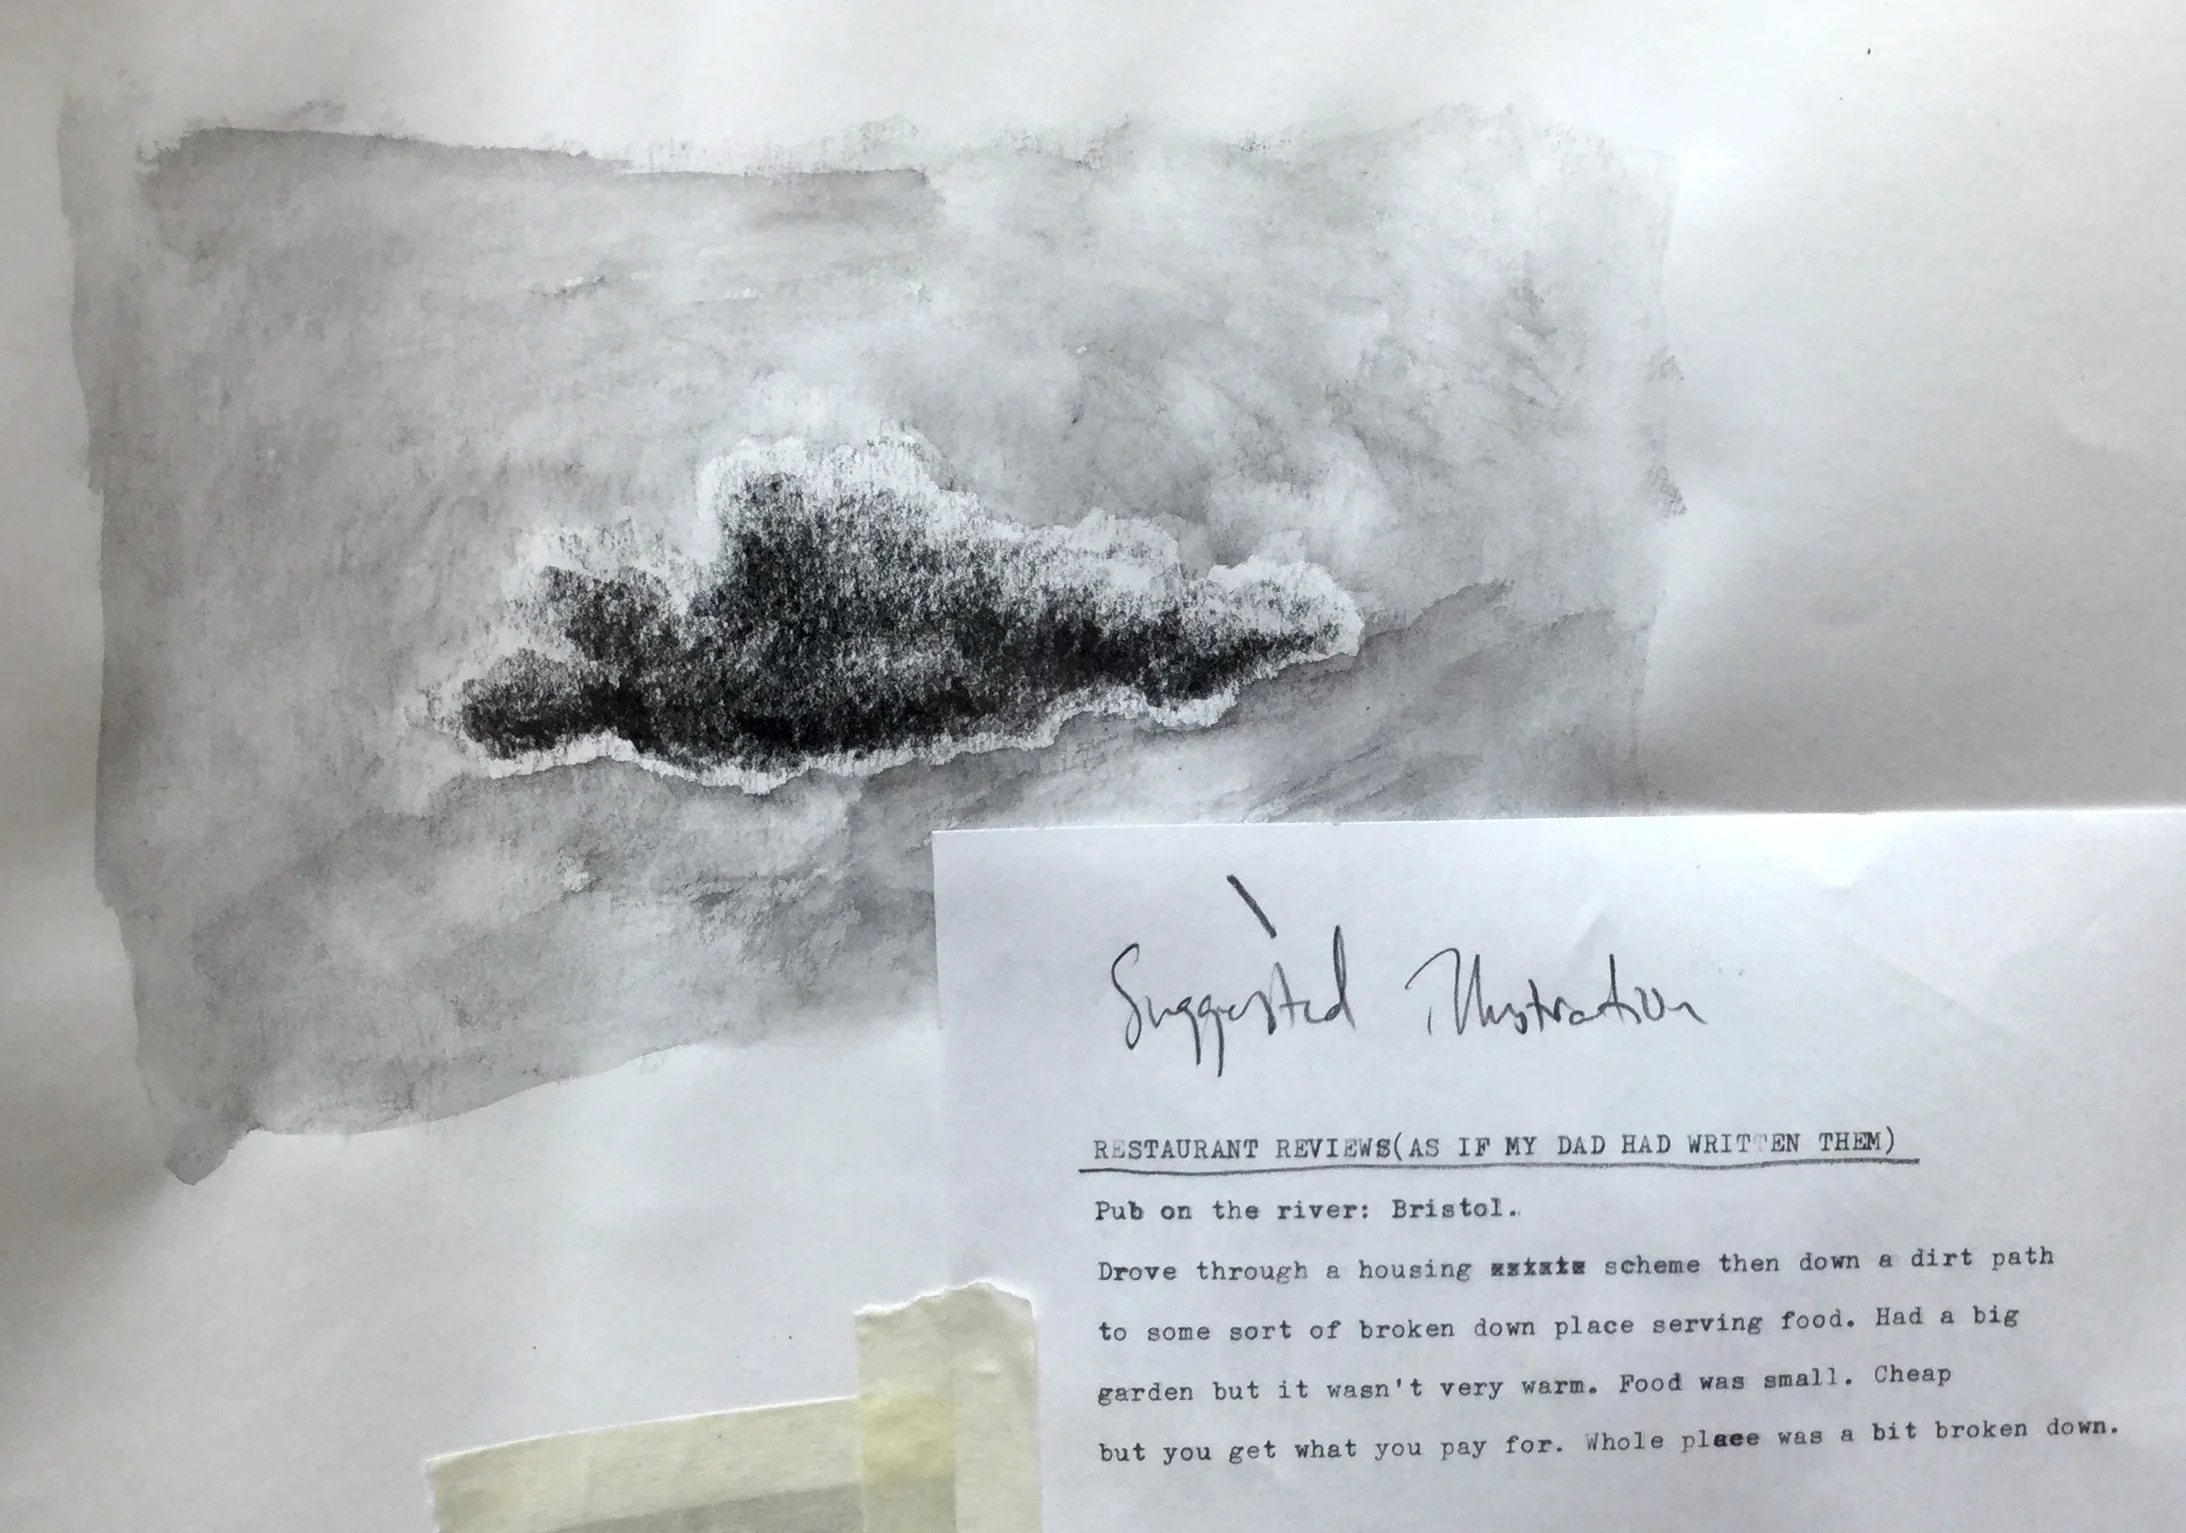 Suggested Illustration
RESTAURANT REVIEWS(AS IF MY DAD HAD WRITTEN THEM)
Pub on the river: Bristol.
Drove through a housing scheme then down a dirt path
to some sort of broken down place serving food. Had a big
garden but it wasn't very warm. Food was small. Cheap
but you get what you pay for. Whole place was a bit broken down.